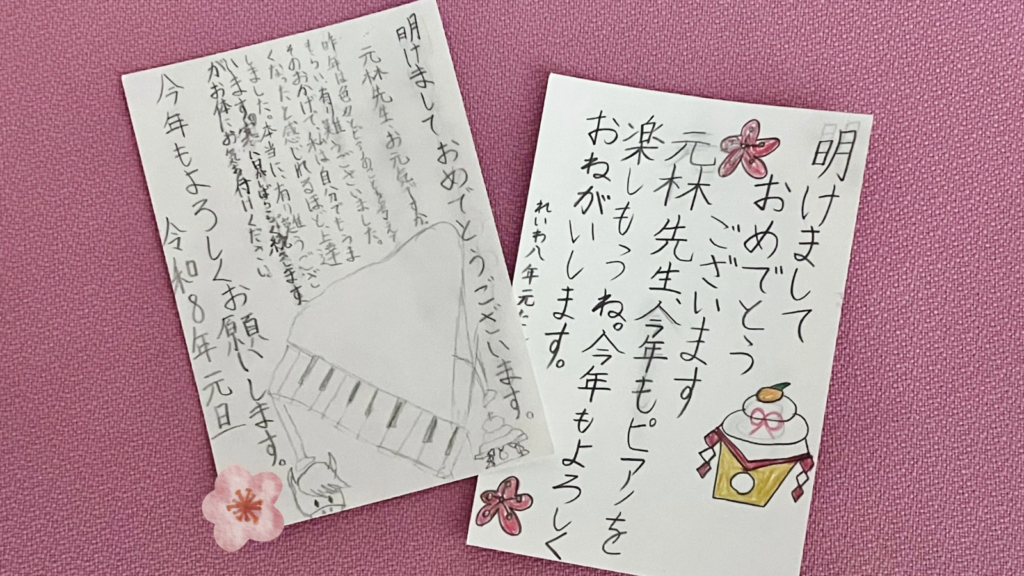 明けましておめでとうございます。
元林先生、お元気ですか。
昨年は色々と
もらい有り難うございました。
そのおかげで私は自分でもうま
くなったと感じれるほど上達
しました。本当に有り難うござ
います。寒い日がしばらく続きます
がお体にお気を付けください。
今年もよろしくお願いします。
令和8年元旦
明けまして
おめでとう
ございます
元林先生、今年もピアノを
楽しもっつね。今年もよろしく
おねがいします。
れいわ八年元た